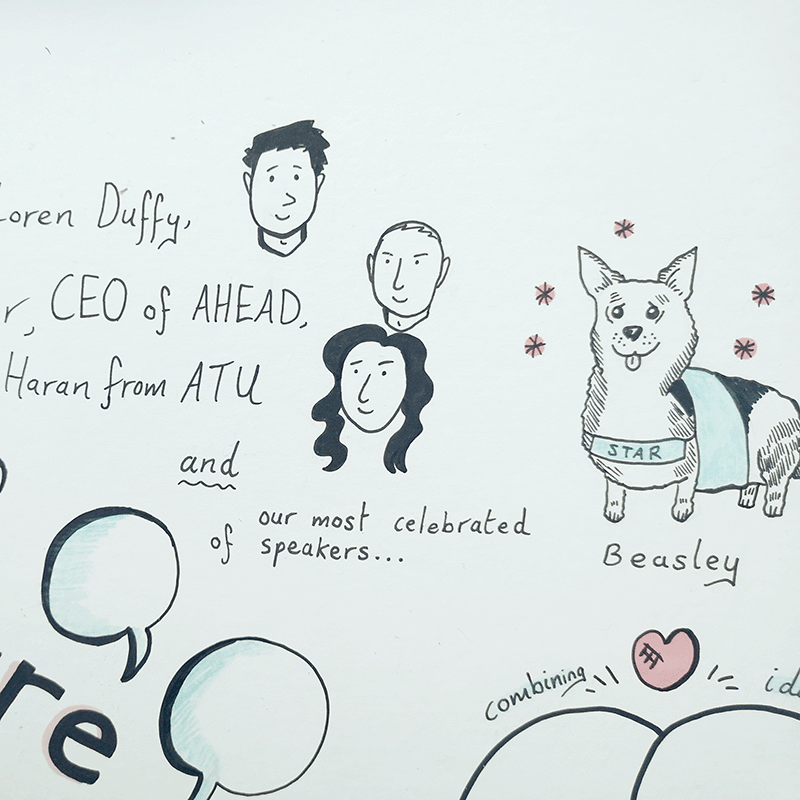 Loren Duffy,
CEO of AHEAD,
Haran from ATU
and
of our most celebrated
speakers...
STAR
Beasley
combining